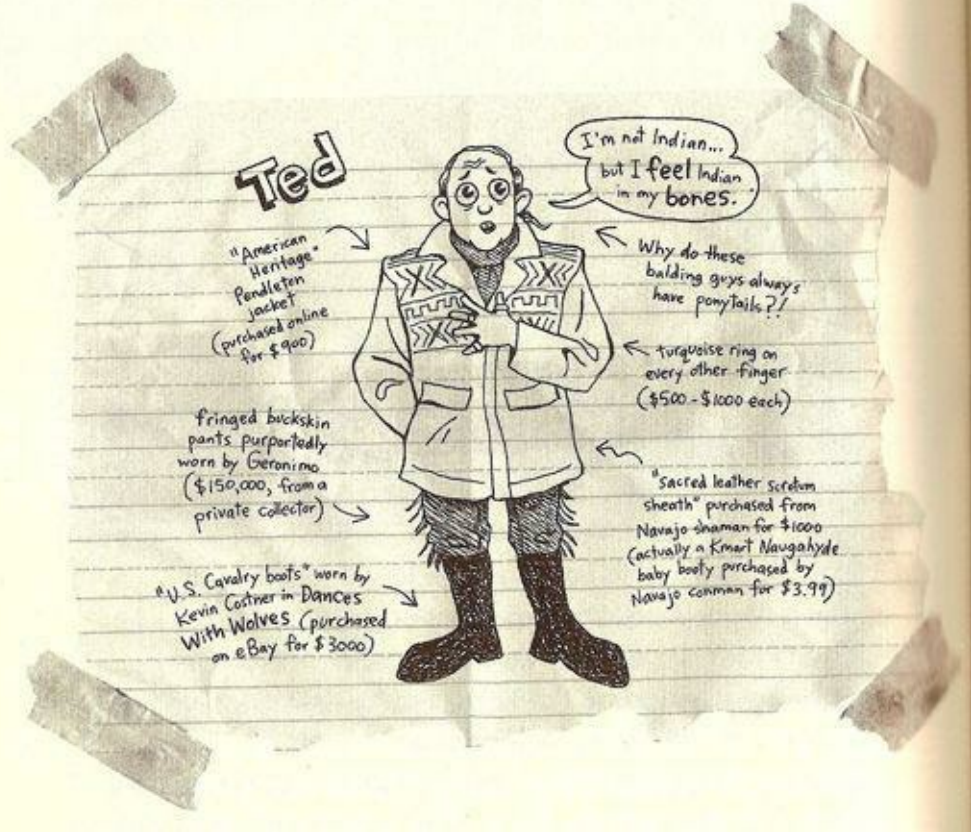 Ted
I'm not Indian...
but I feel Indian
in my bones.
"American
Heritage"
Pendleton
jacket
(purchased online
for $900)
Why do these
balding guys always
have ponytails?!
turquoise ring on
every other finger
($500-$1000 each)
fringed buckskin
pants purportedly
worn by Geronimo
($150,000, from a
private collector)
"Sacred leather scrotum
sheath" purchased from
Navajo shaman for $1000
(actually a Kmart Naugahyde
baby booty purchased by
Navajo conman for $3.99)
"U.S. Cavalry boots" worn by
Kevin Costner in Dances
With Wolves (purchased
on eBay for $3000)